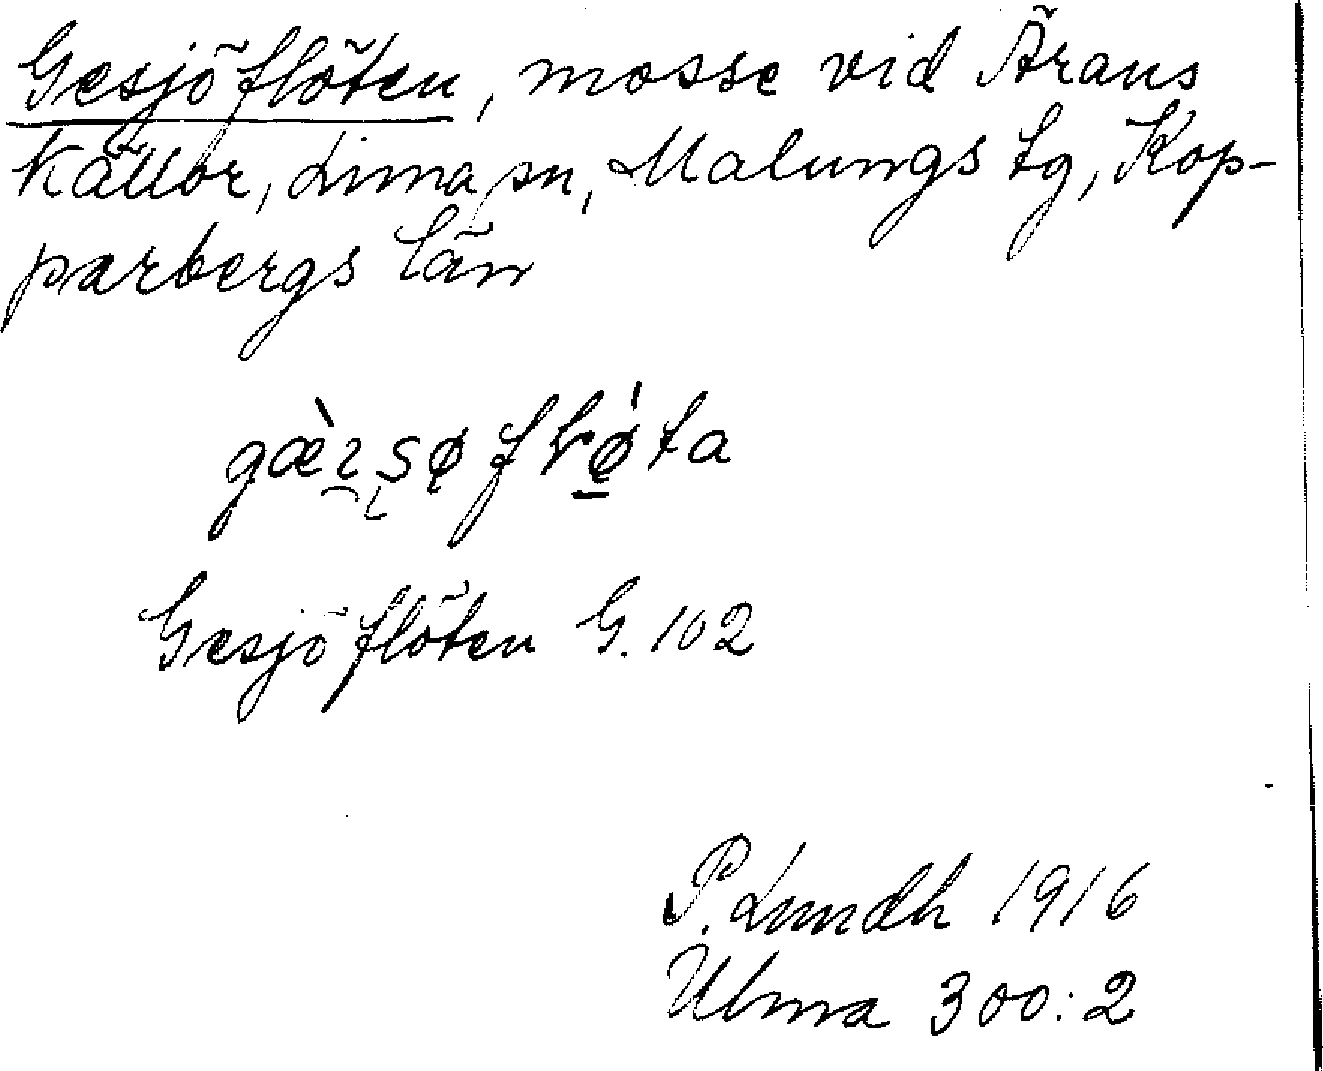 Gesjöflöten, mosse vid Ärans
källor, Lima sn, Malungs tg, Kop-
parbergs län
Gesjöflöten G. 102
P. Lundh 1916
Ulma 300:2